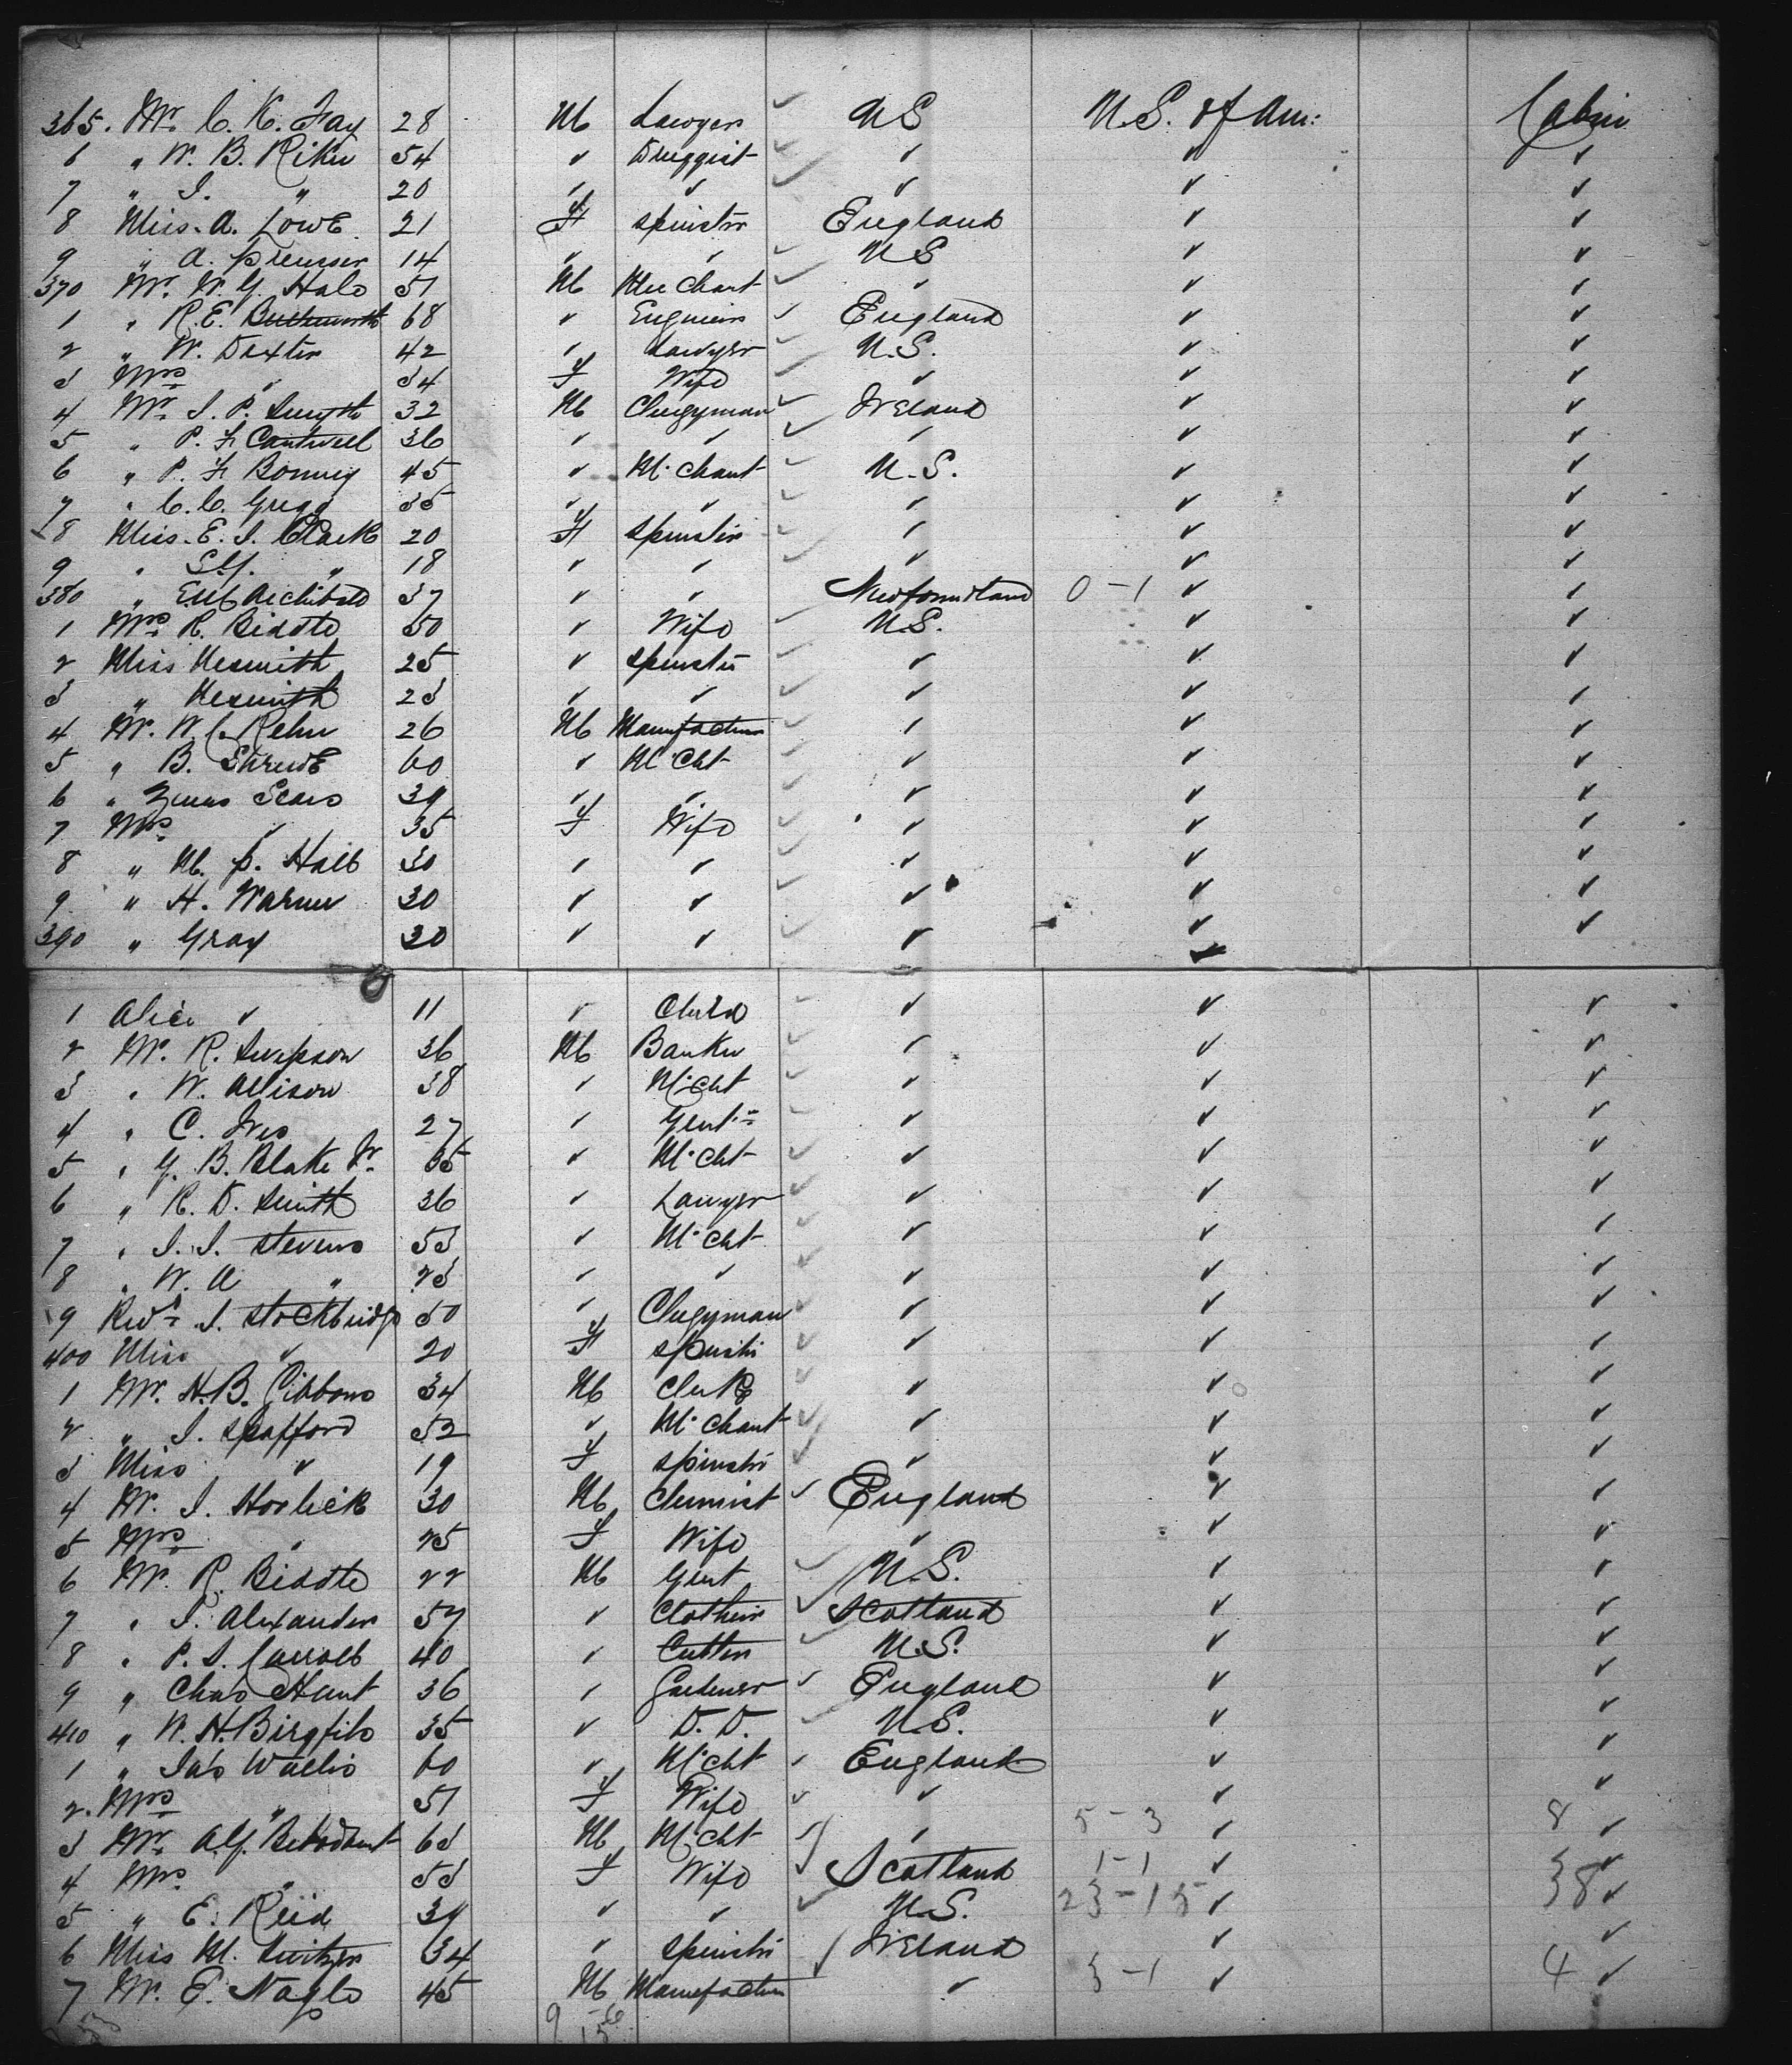 365. Mr. C. K. Fay 28 M Lawyer ✓ US U.S. of Am: Cabin
6 " W. B. Riker 54 ✓ Druggist ✓ ✓ ✓ ✓
7 " J. " 20 ✓ ✓ ✓ ✓ ✓ ✓
8 Miss. A. Lowe 21 F spinster England ✓ ✓
9 " A. 14 " " ✓ US ✓ ✓
370 Mr. W. G. Hale 51 M Merchant ✓ " ✓ ✓
1 " R. E. Butterworth 68 ✓ Engineer ✓ England ✓ ✓
2 " W. Dexter 42 ✓ Lawyer ✓ U.S. ✓ ✓
3 Mrs ✓ 34 F Wife ✓ ✓ ✓ ✓
4 Mr. J. P. Smyth 32 M Clergyman ✓ Ireland ✓ ✓
5 " P. F. Cantwell 36 ✓ ✓ ✓ ✓ ✓ ✓
6 " P. F. 45 ✓ M'chant ✓ U.S. ✓ ✓
7 " C. C. Gregg 35 ✓ ✓ ✓ ✓ ✓ ✓
8 Miss. E. J. Clark 20 F Spinster ✓ ✓ ✓ ✓
9 " " 18 ✓ ✓ ✓ ✓ ✓ ✓
380 " Archibald 37 ✓ ✓ Newfoundland 0-1 ✓ ✓
1 Mrs R. Biddle 50 ✓ Wife ✓ U.S. ✓ ✓
2 Miss Nesmith 25 ✓ spinster ✓ ✓ ✓ ✓
3 " Nesmith 23 ✓ ✓ ✓ ✓ ✓ ✓
4 Mr. W. C. Rehn 26 M Manufacturer ✓ ✓ ✓
5 " B. Shreve 60 ✓ M'cht ✓ ✓ ✓ ✓
6 " Zenas Sears 39 ✓ ✓ ✓ ✓ ✓ ✓
7 Mrs ✓ 35 F Wife ✓ ✓ ✓ ✓
8 " M. P. Hall 30 ✓ ✓ ✓ ✓ ✓ ✓
9 " H. Warner 30 ✓ ✓ ✓ ✓ ✓ ✓
390 " Gray 30 ✓ ✓ ✓ ✓ ✓ ✓
1 Alice ✓ 11 ✓ Child ✓ ✓ ✓ ✓
2 Mr. R. Simpson 36 M Banker ✓ ✓ ✓ ✓
3 " W. Allison 38 ✓ M'cht ✓ ✓ ✓ ✓
4 " C. Ives 27 ✓ Gent'n ✓ ✓ ✓ ✓
5 " G. B. Blake Jr. 35 ✓ M'cht ✓ ✓ ✓ ✓
6 " R. D. Smith 36 ✓ Lawyer ✓ ✓ ✓ ✓
7 " J. J. Stevens 53 ✓ M'cht ✓ ✓ ✓ ✓
8 " W. A " 23 ✓ ✓ ✓ ✓ ✓ ✓
9 Revd J. Stockbridge 50 ✓ Clergyman ✓ ✓ ✓
400 Miss ✓ 20 F spinstr ✓ ✓ ✓ ✓
1 Mr. H. B. Gibbons 34 M Clerk ✓ ✓ ✓
2 " J. Spafford 52 ✓ M'chant ✓ ✓ ✓ ✓
3 Miss ✓ 19 F spinstr ✓ ✓ ✓ ✓
4 Mr. J. Horlick 30 M Chemist ✓ England ✓ ✓
5 Mrs " 25 F Wife ✓ ✓ ✓
6 Mr. R. Biddle 22 M Gent ✓ U.S. ✓ ✓
7 " J. Alexander 57 ✓ Clothier ✓ Scotland ✓ ✓
8 " P. S. Carroll 40 ✓ Cutter ✓ U.S. ✓ ✓
9 " Chas Hunt 36 ✓ Gardener ✓ England ✓ ✓
410 " W. H. 35 ✓ D. D. ✓ U.S. ✓ ✓
1 " Jas Wallis 60 ✓ M'cht ✓ England ✓ ✓
2. Mrs " 51 F Wife ✓ ✓ ✓ ✓
3 Mr. A. G. 63 M M'cht ✓ ✓ 5-3 ✓ 8 ✓
4 Mrs " 53 F Wife ✓ Scotland 1-1 ✓ ✓
5 " E. Reid 39 ✓ ✓ ✓ U.S. 23-15 ✓ 38 ✓
6 Miss M. Switzer 34 ✓ Spinstr ✓ Ireland ✓ ✓
7 Mr. E. Nagle 45 M Manufacturer ✓ 3-1 ✓ 4 ✓